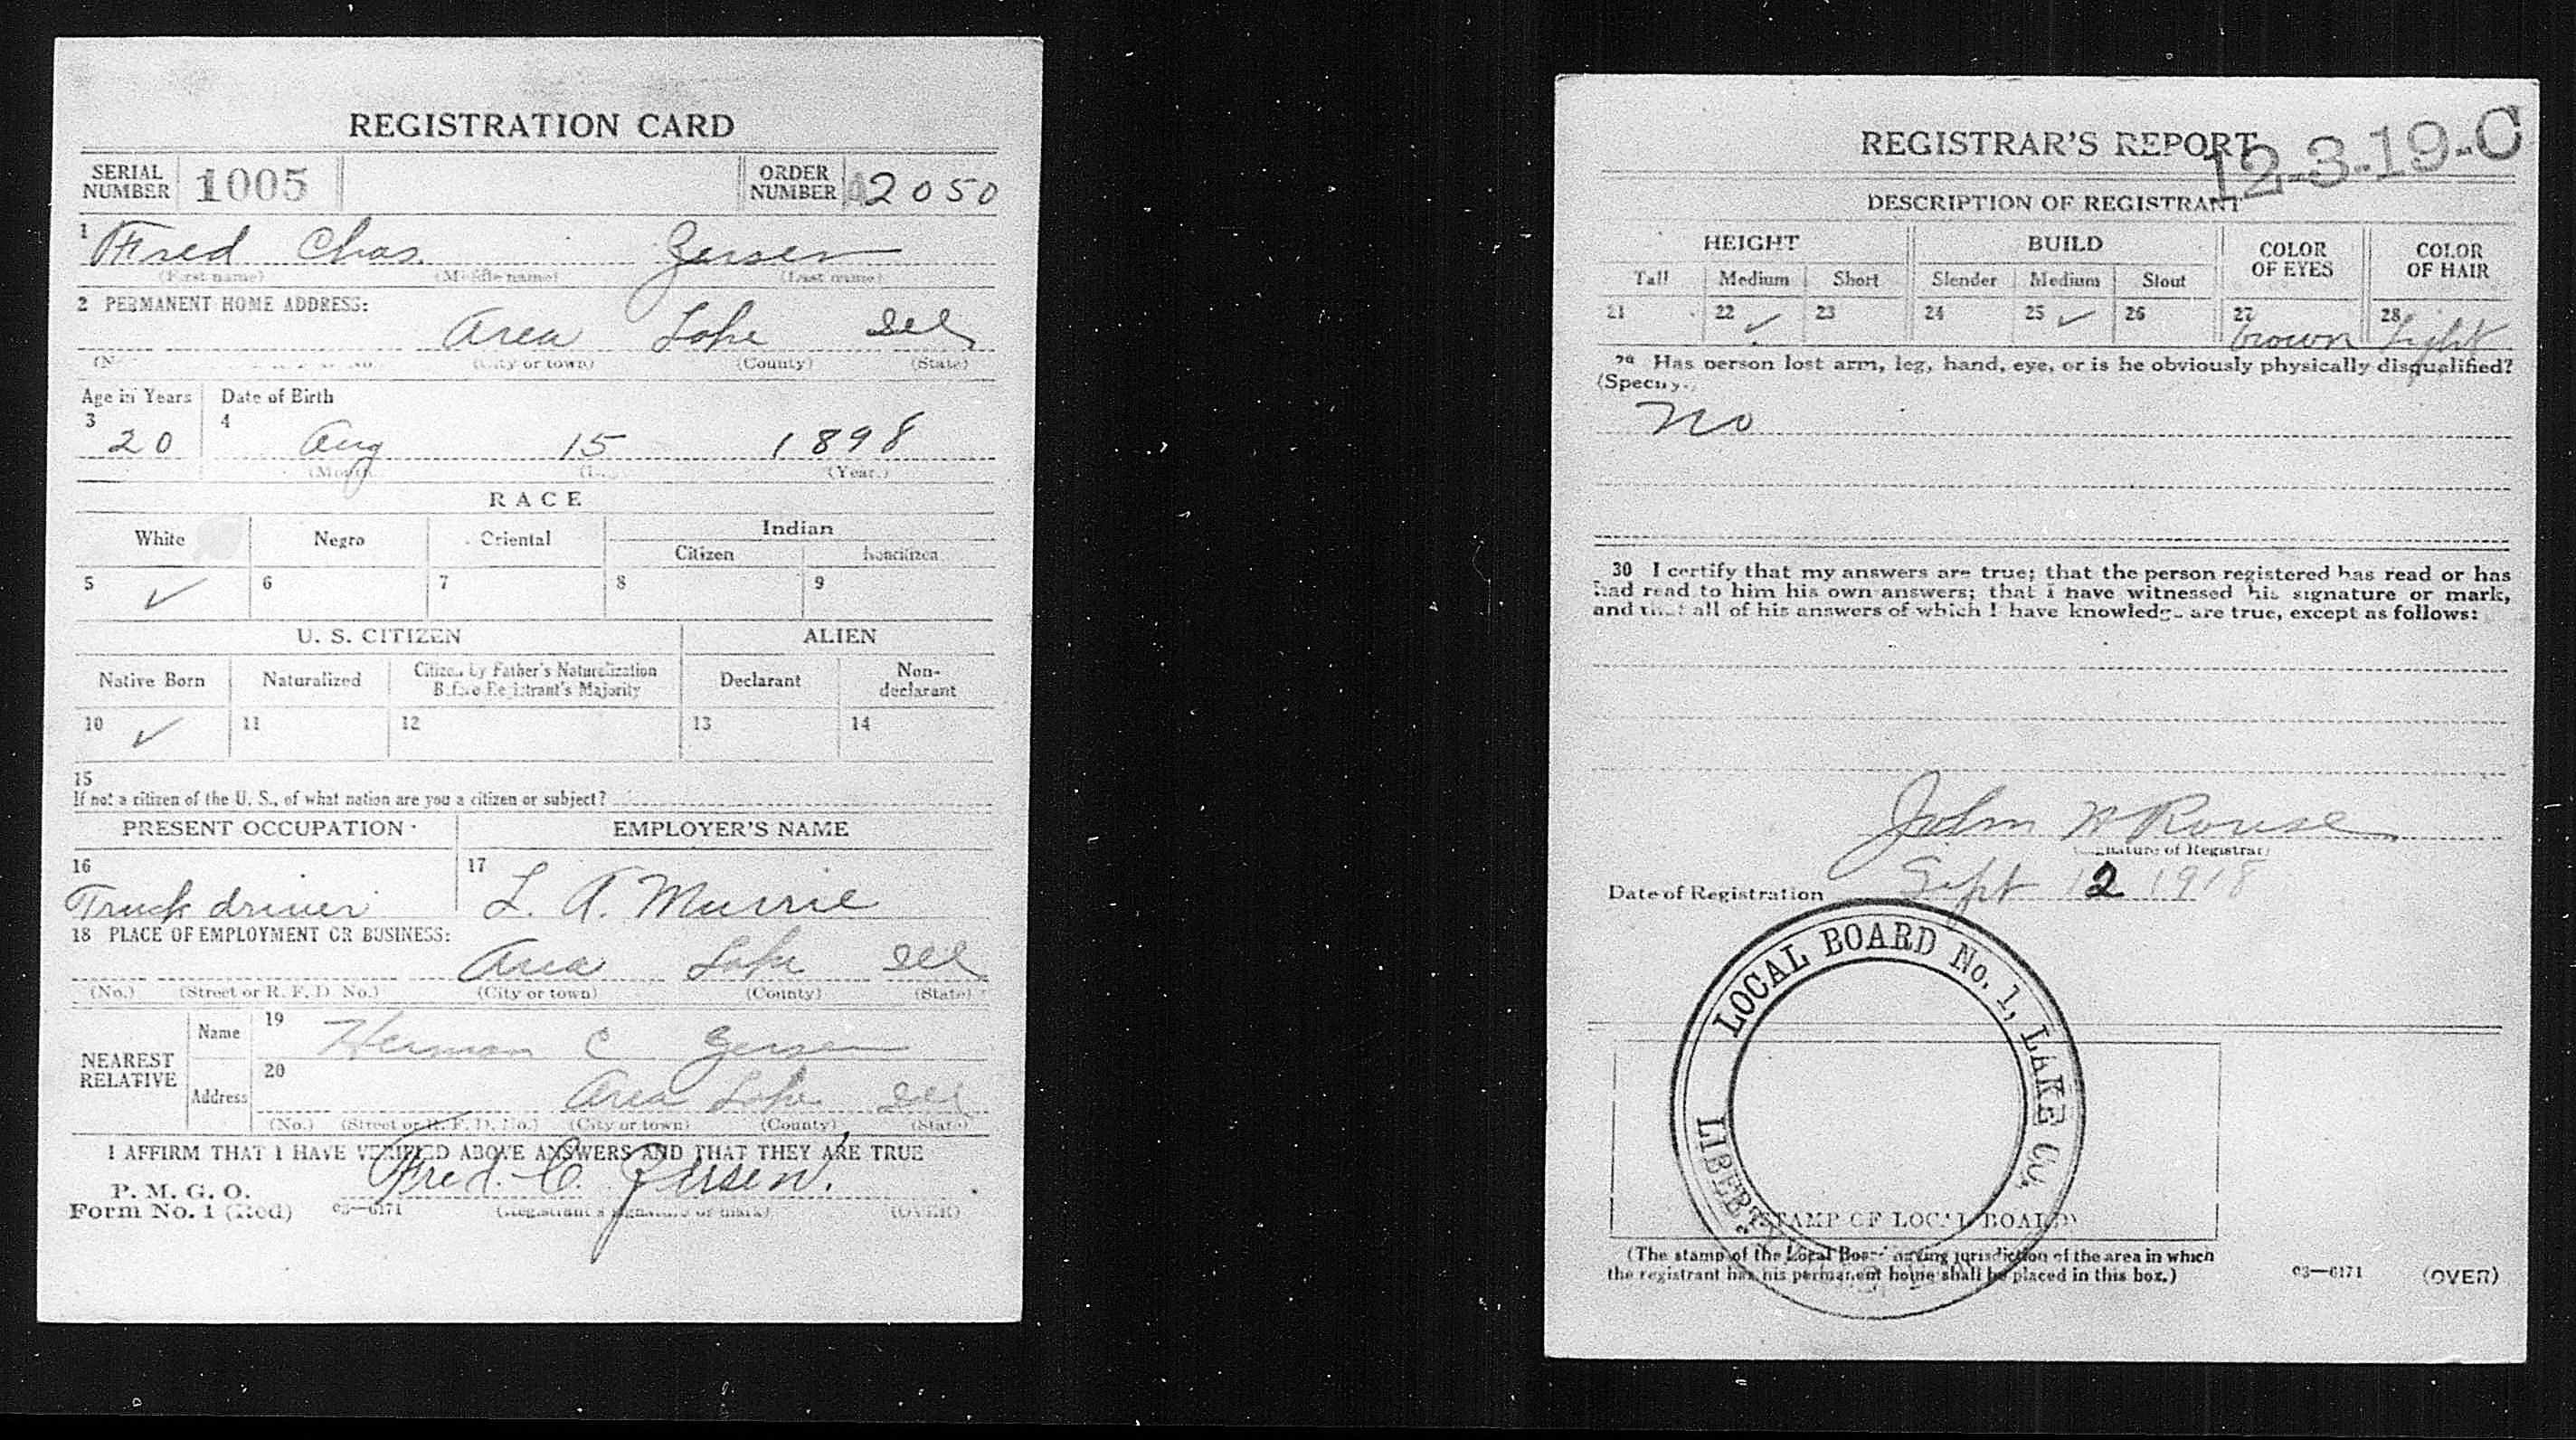 REGISTRATION CARD
SERIAL NUMBER 1005 ORDER NUMBER A2050
1 Fred Chas. Zersen
(First name) (Middle name) (Last name)
2 PERMANENT HOME ADDRESS:
Area Lake Ill
(City or town) (County) (State)
Age in Years Date of Birth
3 20 4 Aug 15 1898
(Month) (Year.)
RACE
White Negro Oriental Indian
Citizen Noncitizen
5 ✓ 6 7 8 9
U. S. CITIZEN ALIEN
Native Born Naturalized Citizen by Father's Naturalization Before Registrant's Majority Declarant Non-declarant
10 ✓ 11 12 13 14
15
If not a citizen of the U. S., of what nation are you a citizen or subject?
PRESENT OCCUPATION EMPLOYER'S NAME
16 Truck driver 17 L. A. Murrie
18 PLACE OF EMPLOYMENT OR BUSINESS:
Area Lake Ill
(No.) (Street or R. F. D. No.) (City or town) (County) (State)
NEAREST RELATIVE
Name 19 Herman C Zersen
Address 20 Area Lake Ill
(No.) (Street or R. F. D. No.) (City or town) (County) (State)
I AFFIRM THAT I HAVE VERIFIED ABOVE ANSWERS AND THAT THEY ARE TRUE
P. M. G. O.
Form No. 1 (Red) 03—6171 Fred. C. Zersen.
(Registrant's signature or mark) (OVER)
REGISTRAR'S REPORT
12-3-19-C
DESCRIPTION OF REGISTRANT
HEIGHT BUILD COLOR OF EYES COLOR OF HAIR
Tall Medium Short Slender Medium Stout
21 22 ✓ 23 24 25 ✓ 26 27 brown 28 Light
29 Has person lost arm, leg, hand, eye, or is he obviously physically disqualified?
(Specify.)
no
30 I certify that my answers are true; that the person registered has read or has
had read to him his own answers; that I have witnessed his signature or mark,
and that all of his answers of which I have knowledge are true, except as follows:
John W Rouse
(Signature of Registrar)
Date of Registration Sept 12 1918
LOCAL BOARD No. 1, LAKE CO.
(STAMP OF LOCAL BOARD)
(The stamp of the Local Board having jurisdiction of the area in which
the registrant has his permanent home shall be placed in this box.)
03—6171 (OVER)